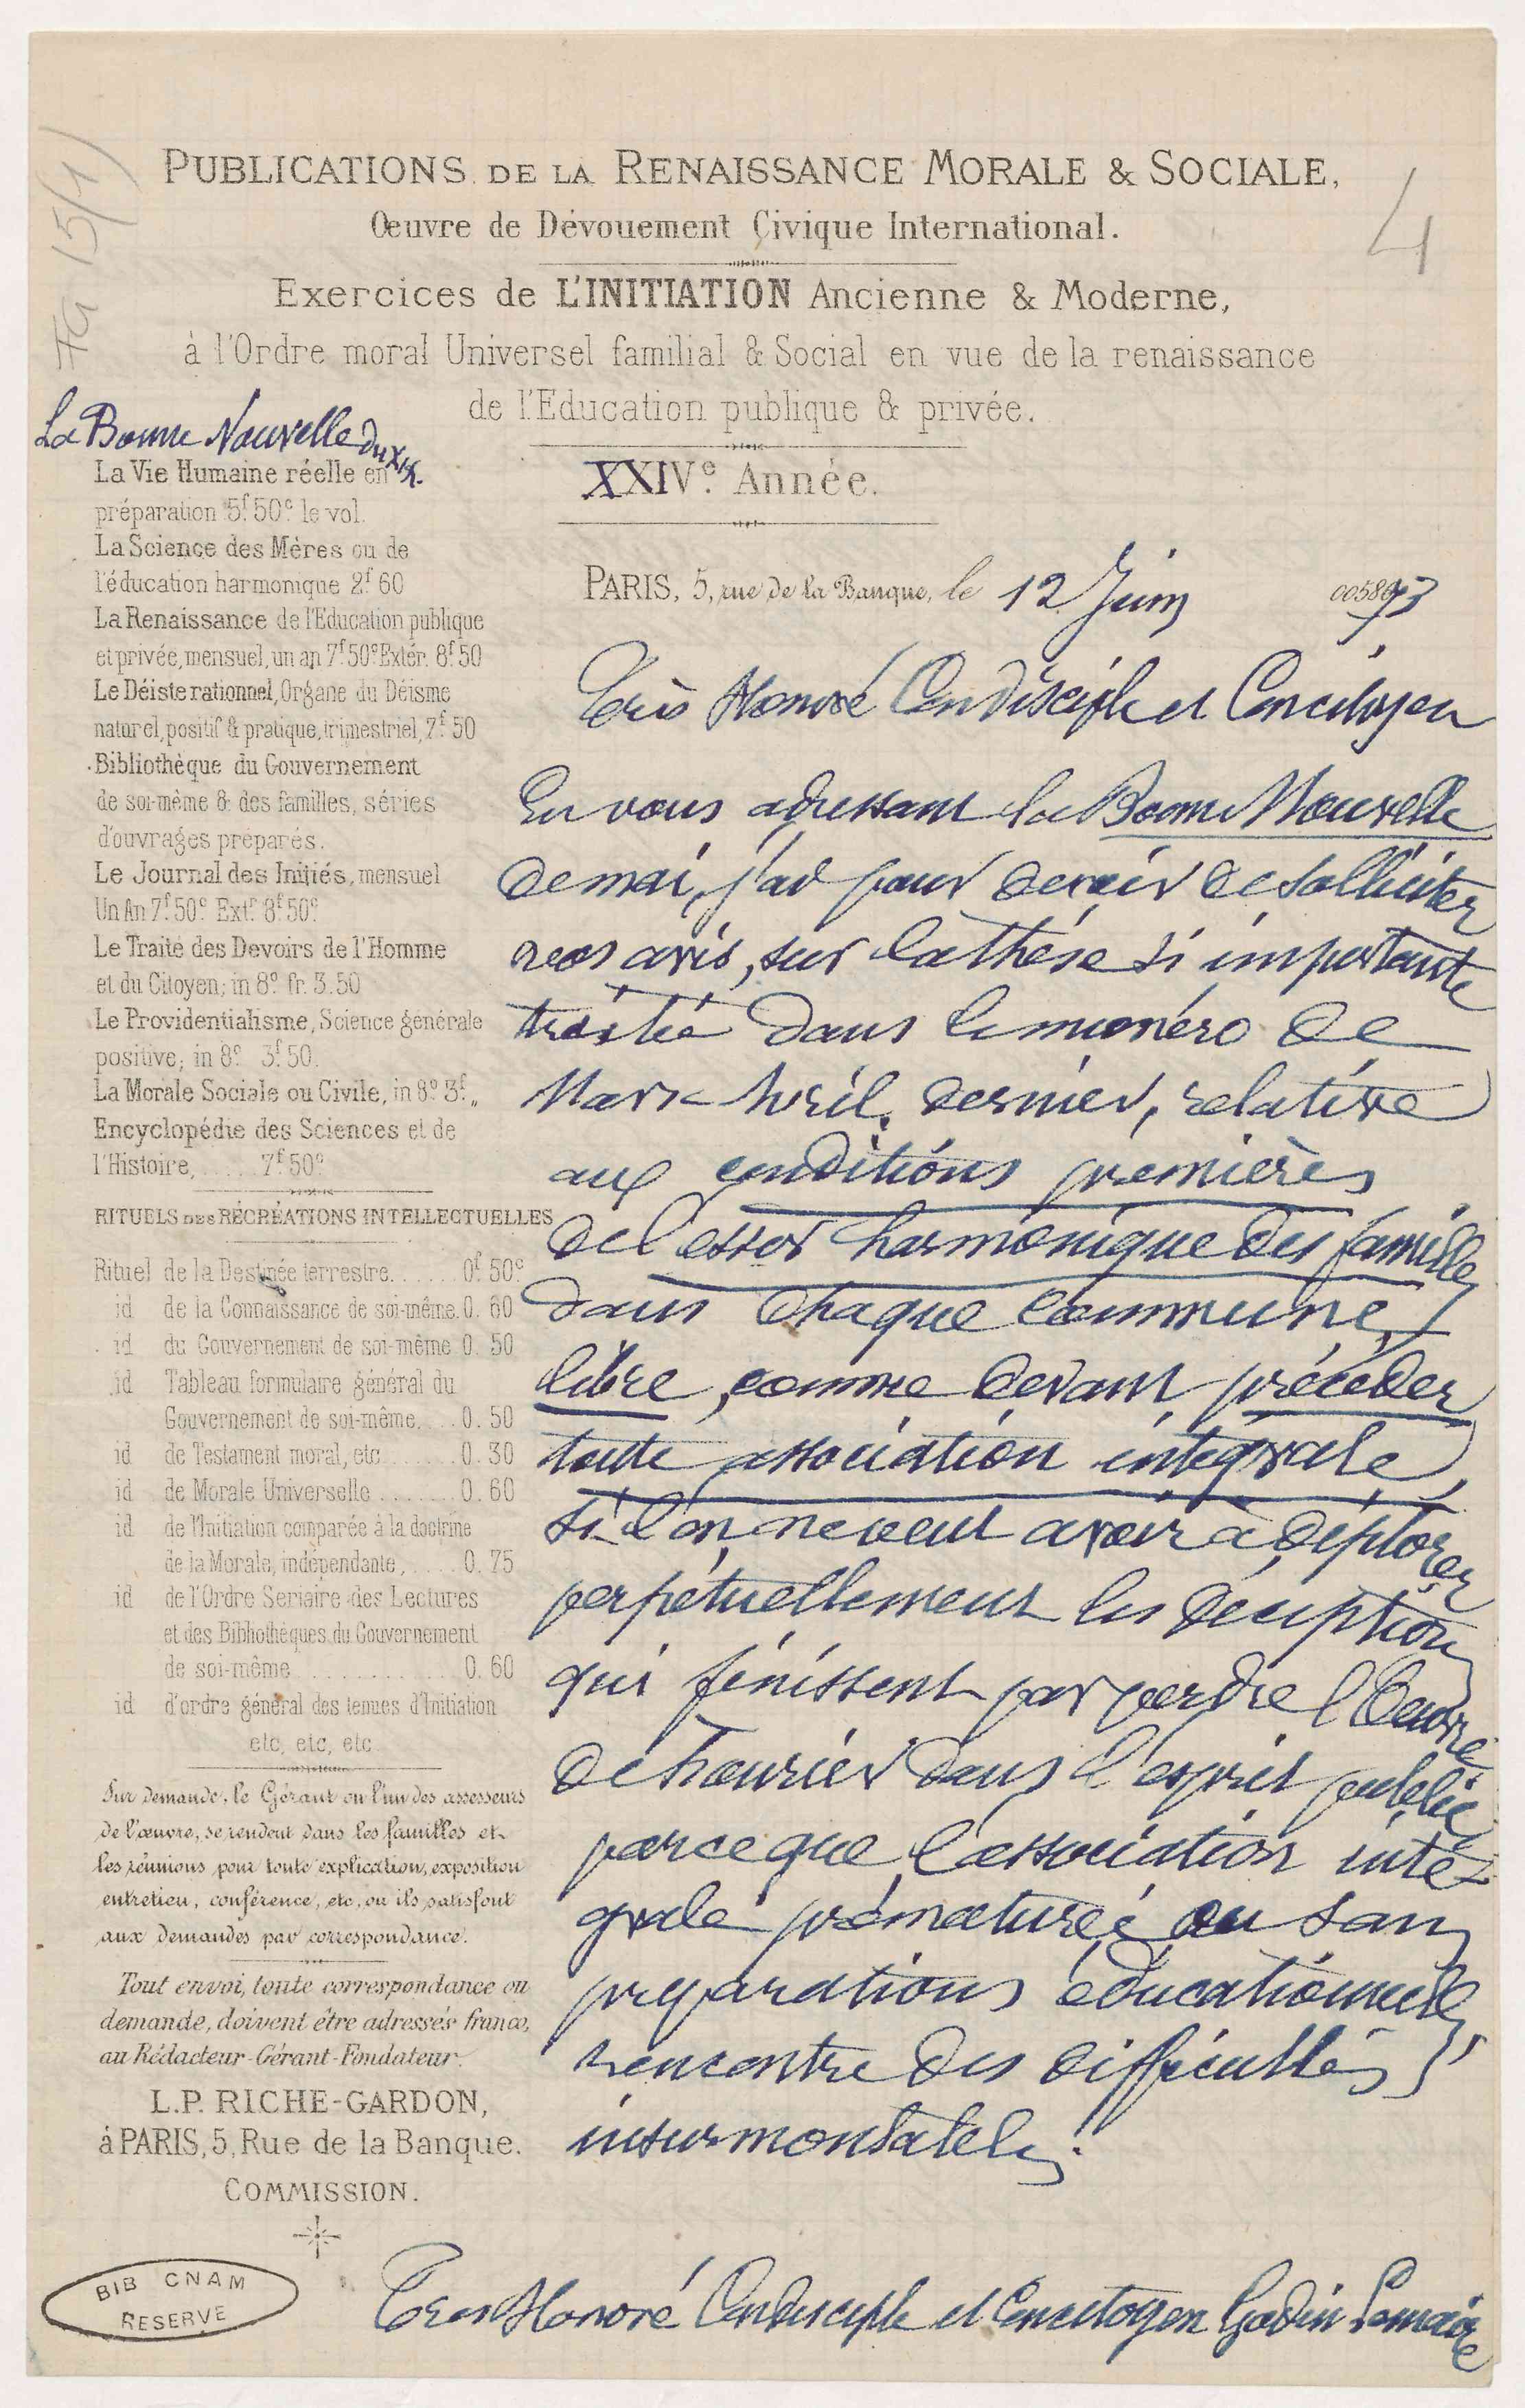 Fa 15(1)
4
PUBLICATIONS DE LA RENAISSANCE MORALE & SOCIALE,
Œuvre de Dévouement Civique International.
Exercices de L'INITIATION Ancienne & Moderne,
à l'Ordre moral Universel familial & Social en vue de la renaissance
de l'Education publique & privée.
XXIVe. Année.
La Bonne Nouvelle du XIX.
La Vie Humaine réelle en
préparation 5f 50c le vol.
La Science des Mères ou de
l'éducation harmonique 2f 60
La Renaissance de l'Education publique
et privée, mensuel, un an 7f 50c Extér. 8f 50
Le Déiste rationnel, Organe du Déisme
naturel, positif & pratique, trimestriel, 7f 50
Bibliothèque du Gouvernement
de soi-même & des familles, séries
d'ouvrages préparés.
Le Journal des Initiés, mensuel
Un An 7f 50c Extr 8f 50c
Le Traité des Devoirs de l'Homme
et du Citoyen; in 8o fr. 3.50
Le Providentialisme, Science générale
positive; in 8o 3f 50.
La Morale Sociale ou Civile, in 8o 3f „
Encyclopédie des Sciences et de
l'Histoire, ..... 7f 50c
RITUELS DES RÉCRÉATIONS INTELLECTUELLES
Rituel de la Destinée terrestre...... 0f 50c
id de la Connaissance de soi-même. 0. 60
id du Gouvernement de soi-même 0. 50
id Tableau formulaire général du
Gouvernement de soi-même.... 0. 50
id de Testament moral, etc ...... 0. 30
id de Morale Universelle ....... 0. 60
id de l'Initiation comparée à la doctrine
de la Morale, indépendante, ..... 0. 75
id de l'Ordre Seriaire des Lectures
et des Bibliothèques du Gouvernement
de soi-même .......... 0. 60
id d'ordre général des tenues d'Initiation
etc, etc, etc
Sur demande, le Gérant ou l'un des assesseurs
de l'œuvre, se rendent dans les familles et
les réunions pour toute explication, exposition
entretien, conférence, etc, ou ils satisfont
aux demandes par correspondance.
Tout envoi, toute correspondance ou
demande, doivent être adressés franco,
au Rédacteur-Gérant-Fondateur.
L.P. RICHE-GARDON,
à PARIS, 5, Rue de la Banque.
COMMISSION.
BIB CNAM
RESERVE
PARIS, 5, rue de la Banque, le 12 Juin 73
Très Honoré Condisciple et Concitoyen
En vous adressant la Bonne Nouvelle
de mai, j'ai pour devoir de solliciter
vos avis, sur la thèse si importante
traitée dans le numéro de
Mars Avril dernier, relative
aux conditions premières
de l'essor harmonique des familles
dans chaque commune
libre, comme devant précéder
toute association intégrale,
si l'on ne veut avoir à déplorer
perpétuellement les déceptions
qui finissent par perdre l'Oeuvre
de Fourier dans l'esprit public
parceque l'association inté-
grale prématurée ou sans
préparations éducationnelles
rencontre des difficultés
insurmontables.
Très Honoré Condisciple et Concitoyen Godin Lemaire